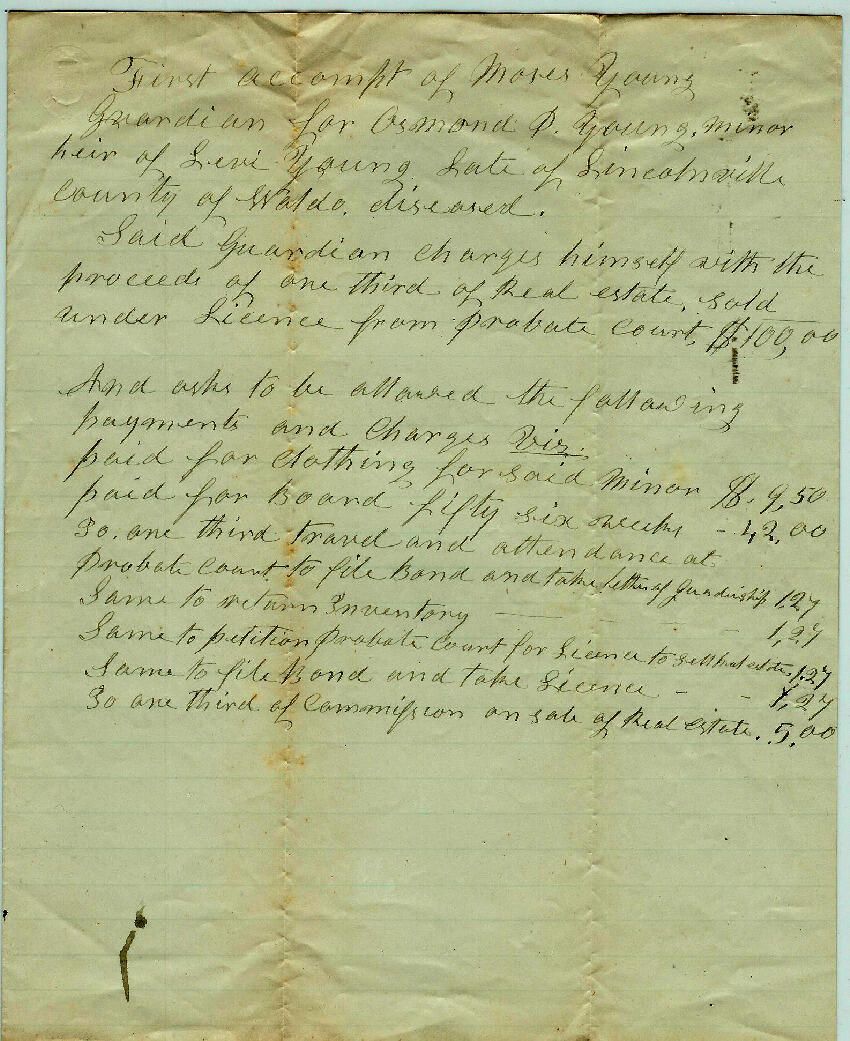 First accompt of Moses Young
Guardian for Osmond P. Young, minor
heir of Levi Young Late of Lincolnville
County of Waldo, diseased.
Said Guardian Charges himself with the
proceeds of one third of Real estate, sold
under Licence from Probate Court, $100,00
And asks to be allowed the following
payments and Charges Viz.
paid for Clothing for said Minor $. 9,50
paid for Board fifty six weeks - 42,00
To. one third travel and attendance at
Probate Court to file Bond and take letter of Guardiship 1,27
Same to return Inventory - - - 1,27
Same to petition Probate Court for Licence to sell real estate, 1,27
Same to file Bond and take Licence - - 1,27
To one third of Commission on sale of Real estate. 5,00